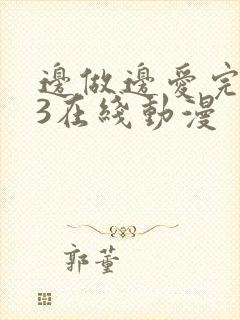 邊做邊愛完
3在綫動漫
郭董